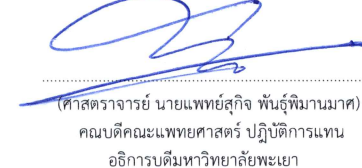 (ศาสตราจารย์ นายแพทย์สุกิจ พันธุ์พิมานมาศ)
คณบดีคณะแพทยศาสตร์ ปฏิบัติการแทน
อธิการบดีมหาวิทยาลัยพะเยา